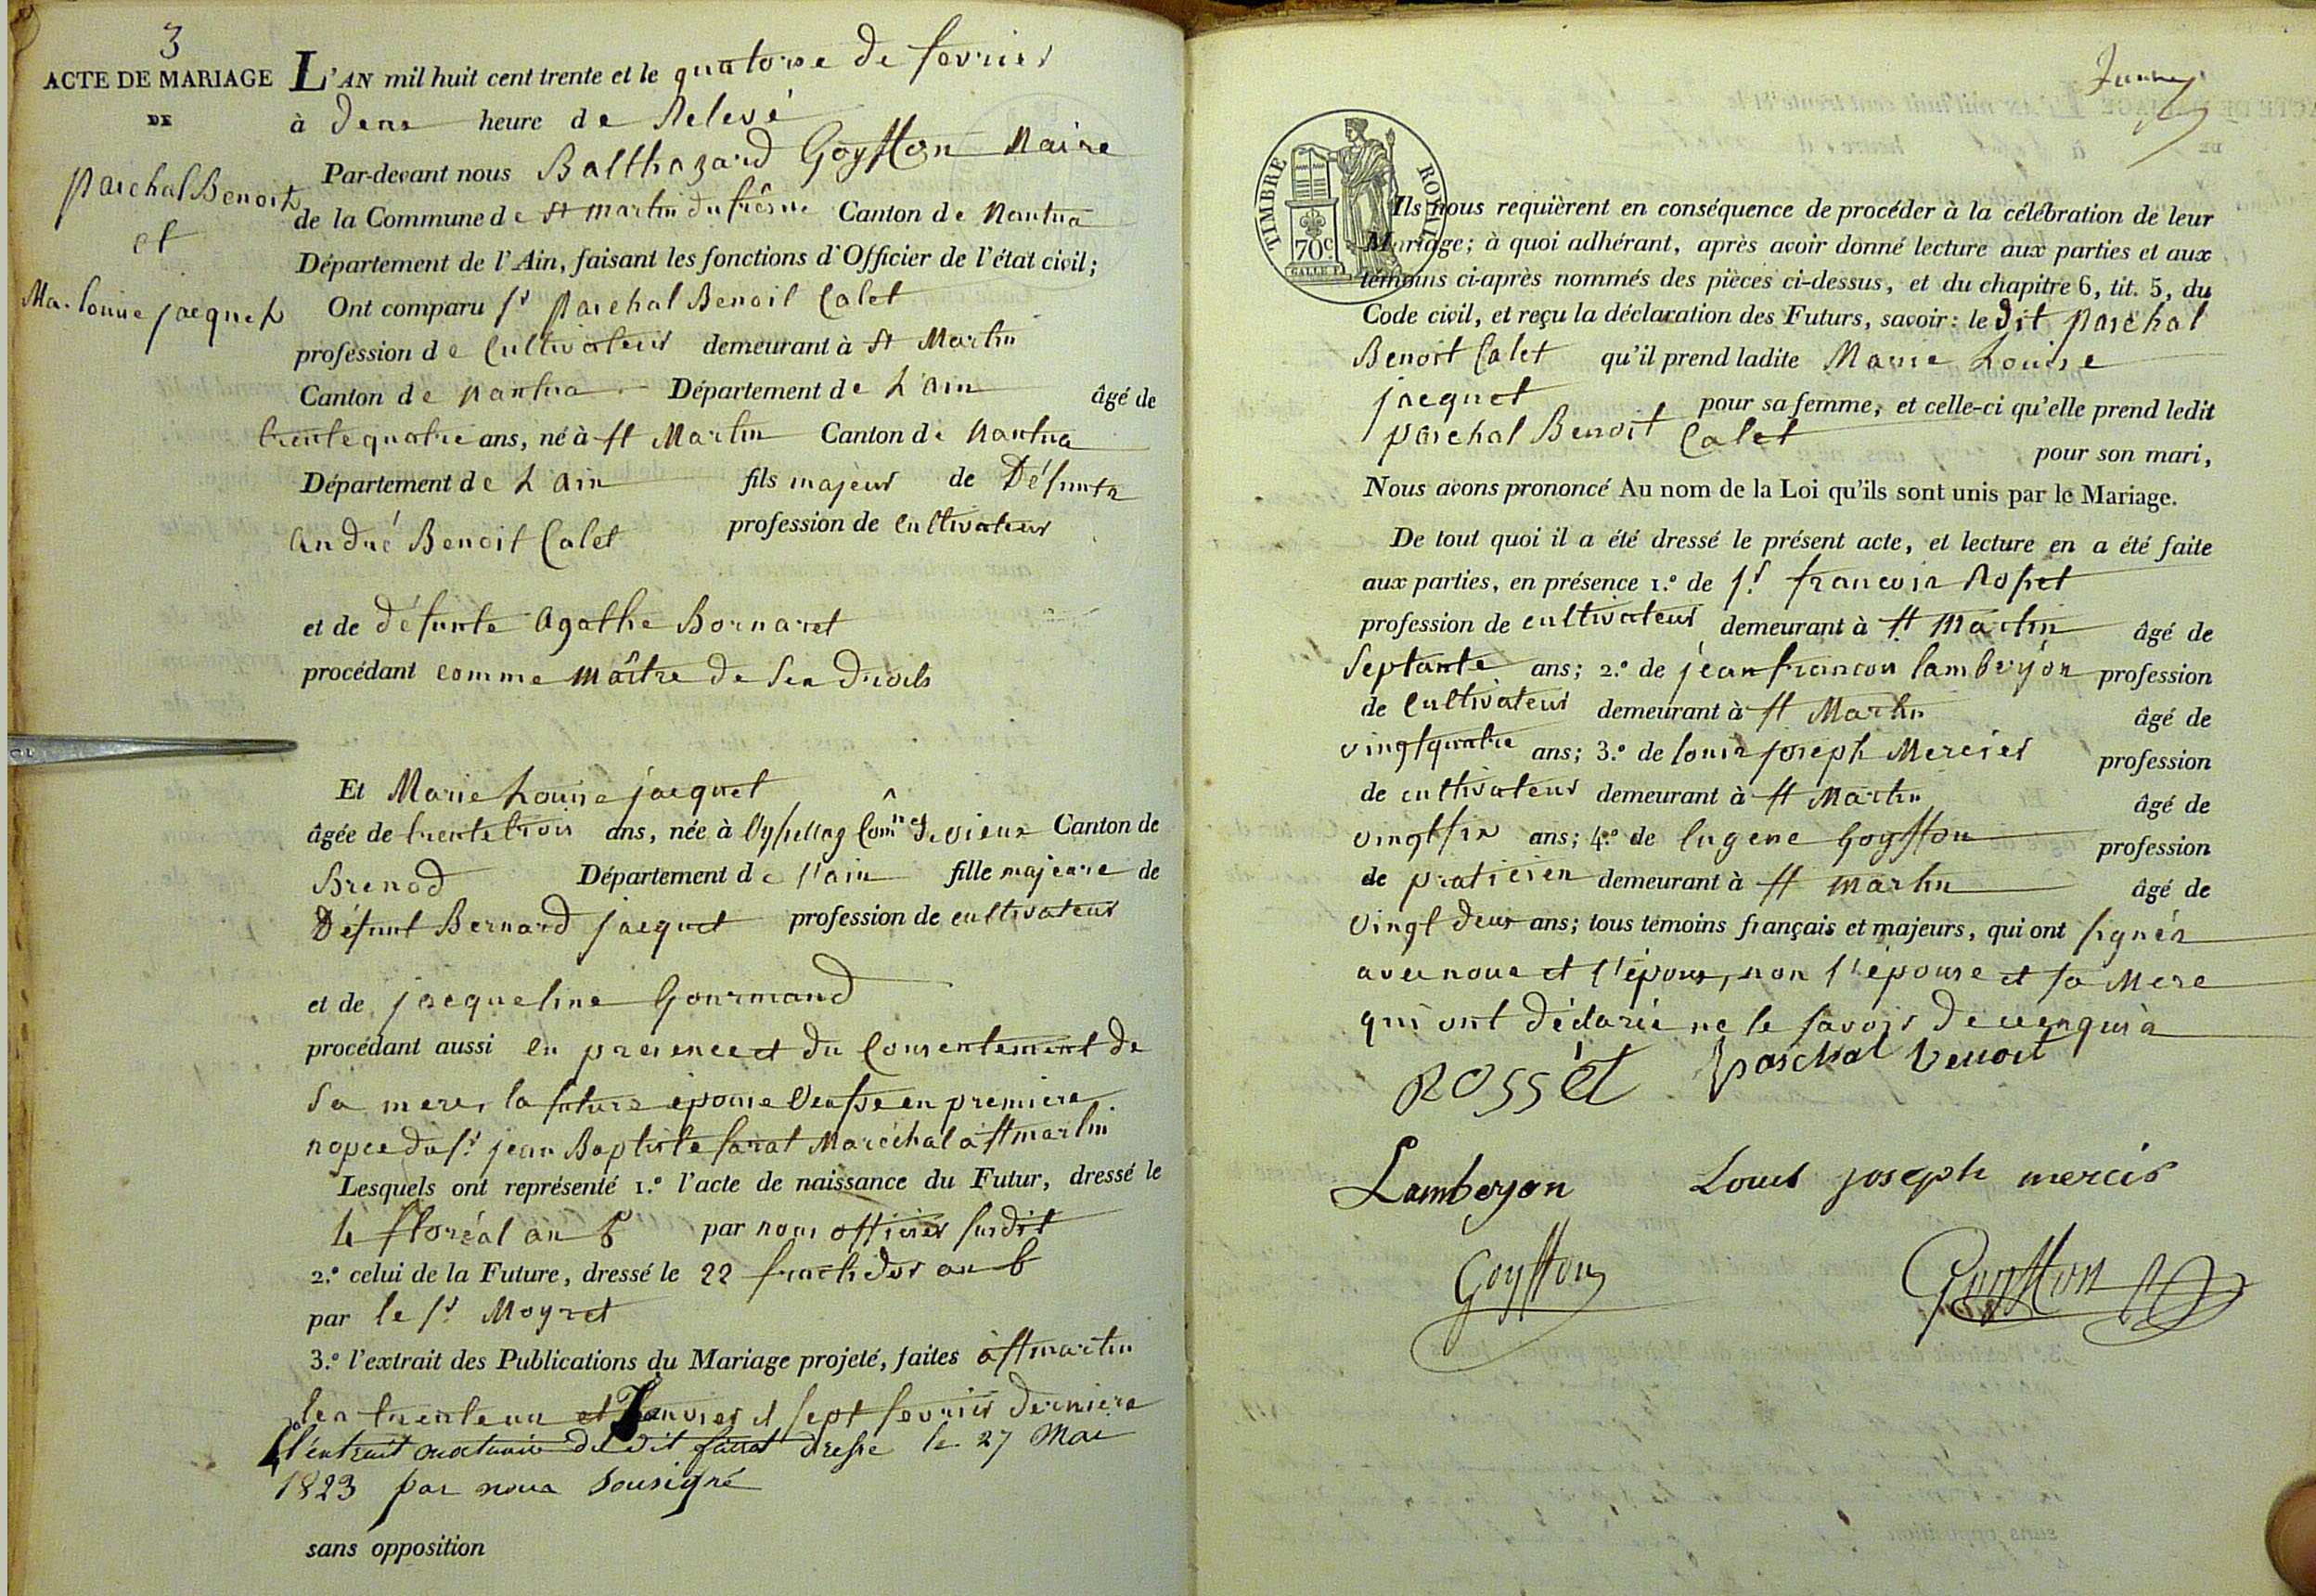 3
ACTE DE MARIAGE
DE
Paschal Benoit
et
Ma. Louise jacquet
L'AN mil huit cent trente et le quatorse de fevrier
à deux heure de Relevé
Par-devant nous Balthazard Goyffon Maire
de la Commune de St martin du frêsne Canton de Nantua
Département de l'Ain, faisant les fonctions d'Officier de l'état civil;
Ont comparu Sr Paschal Benoit Calet
profession de Cultivateur demeurant à St Martin
Canton de Nantua Département de L'ain âgé de
trente quatre ans, né à St Martin Canton de Nantua
Département de L'ain fils majeur de Défunts
andré Benoit Calet profession de cultivateur
et de défunte Agathe Bornaret
procédant comme maître de ses droits
Et Marie Louise jacquet
âgée de trente trois ans, née à Comne de vieux Canton de
Brenod Département de l'ain fille majeure de
Défunt Bernard jacquet profession de cultivateur
et de jacqueline Gourmand
procédant aussi en presence et du Consentement de
Sa mere, la future epouse Veufve en premiere
nopce du Sr jean Baptiste Maréchal à St martin
Lesquels ont représenté 1.º l'acte de naissance du Futur, dressé le
4 floréal an par nous officier susdit
2.º celui de la Future, dressé le 22 fructidor an
par le Sr Moyret
3.º l'extrait des Publications du Mariage projeté, faites à St martin
les trente un et Janvier et sept fevrier derniers
4º l'extrait mortuaire du dit dressé le 27 Mai
1823 par nous Sousigné
sans opposition
TIMBRE ROYAL
70c
GALLE F.
Ils nous requièrent en conséquence de procéder à la célébration de leur
Mariage; à quoi adhérant, après avoir donné lecture aux parties et aux
témoins ci-après nommés des pièces ci-dessus, et du chapitre 6, tit. 5, du
Code civil, et reçu la déclaration des Futurs, savoir: le dit Paschal
Benoit Calet qu'il prend ladite Marie Louise
jacquet pour sa femme, et celle-ci qu'elle prend ledit
paschal Benoit Calet
pour son mari,
Nous avons prononcé Au nom de la Loi qu'ils sont unis par le Mariage.
De tout quoi il a été dressé le présent acte, et lecture en a été faite
aux parties, en présence 1.º de Sr. francois Rosset
profession de cultivateur demeurant à St Martin âgé de
Septante ans; 2.º de jean francois lamberjon profession
de Cultivateur demeurant à St Martin âgé de
vingt quatre ans; 3.º de louis joseph Mercier profession
de cultivateur demeurant à St Martin âgé de
vingt six ans; 4.º de Eugene Goyffon profession
de praticien demeurant à St martin âgé de
vingt deux ans; tous témoins français et majeurs, qui ont signés
avec nous et l'époux, non l'épouse et sa Mere
qui ont déclaré ne le savoir de ce enquis
ROSSEt Paschal benoit
Lamberjon Louis joseph mercier
Goyffon Goyffon